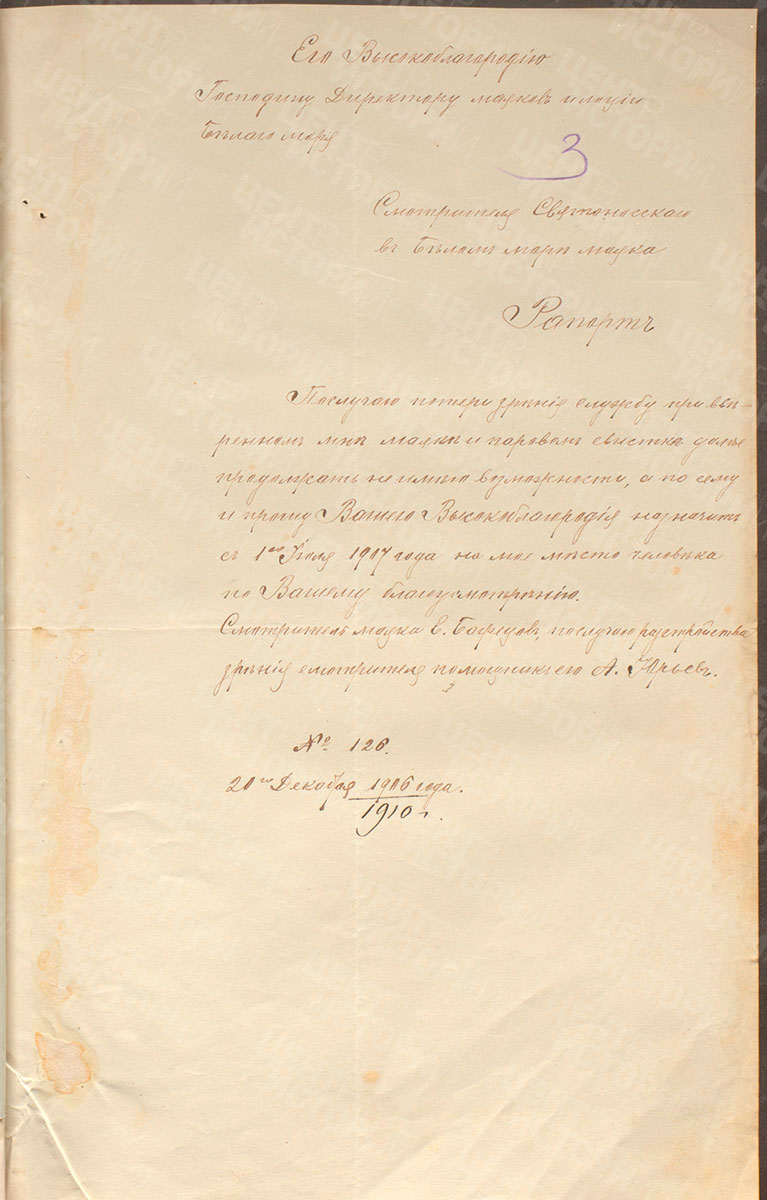 Его Высокоблагородію
Господину Директору маяковъ и лоціи
Бѣлаго моря
3
Смотрителя Святоносскаго
въ Бѣломъ морѣ маяка
Рапортъ
Послучаю потери зрѣнія службу при ввѣ-
ренномъ мнѣ маякѣ и паровомъ свисткѣ далѣе
продолжать не имѣю возможности, а по сему
и прошу Вашего Высокоблагородія назначить
съ 1го Іюля 1907 года на мое мѣсто человѣка
по Вашему благоусмотрѣнію.
Смотритель маяка Е. послучаю растройства
зрѣнія смотрителя помошникъ его А. Юрьевъ.
№ 126.
20го Декабря 1906 года.
1910 г.